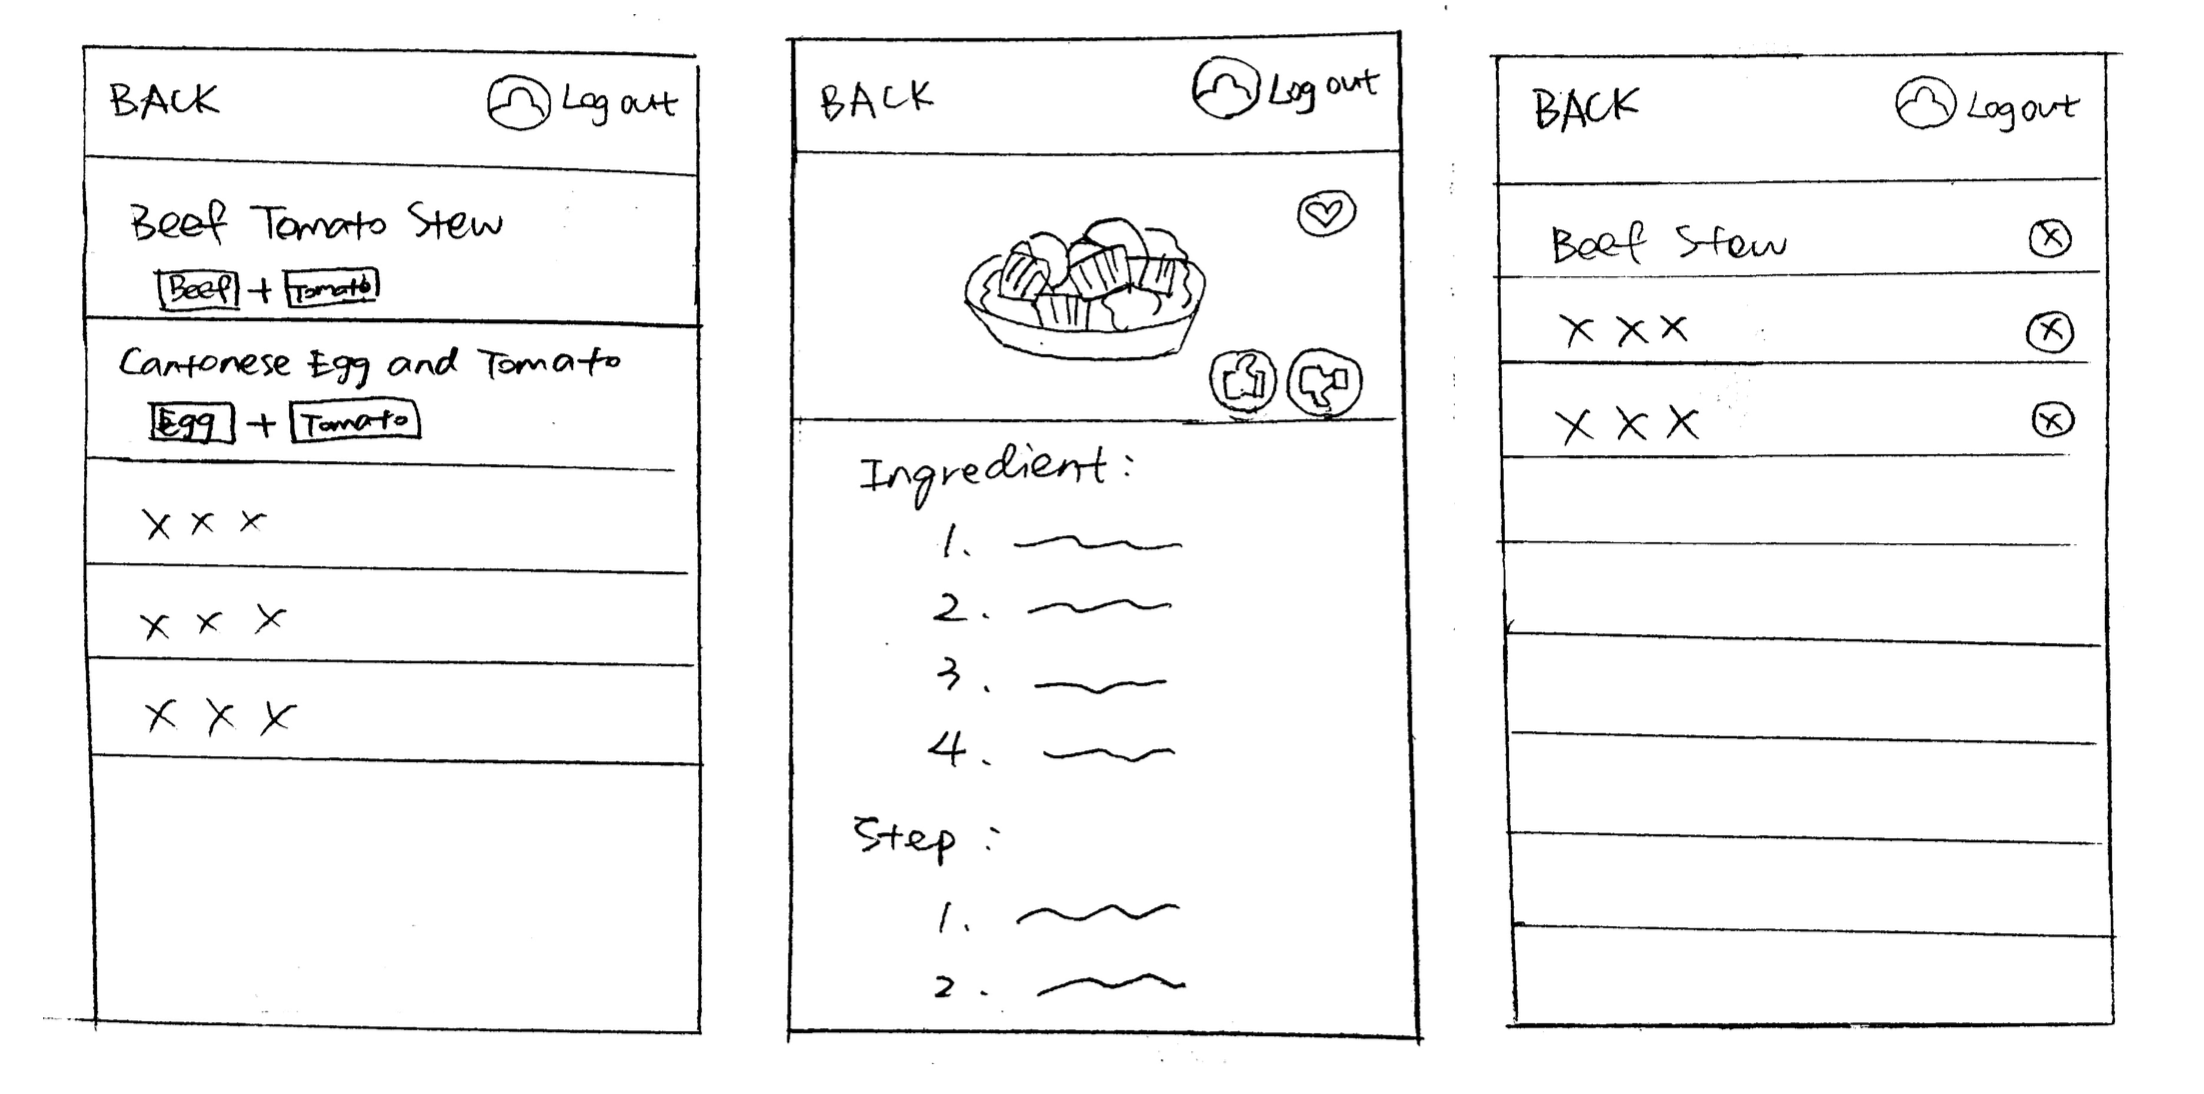 BACK Log out
Beef Tomato Stew
Beef + Tomato
Cantonese Egg and Tomato
Egg + Tomato
X X X
X X X
X X X
BACK Log out
Ingredient:
1.
2.
3.
4.
Step:
1.
2.
BACK Log out
Beef Stew X
X X X X
X X X X